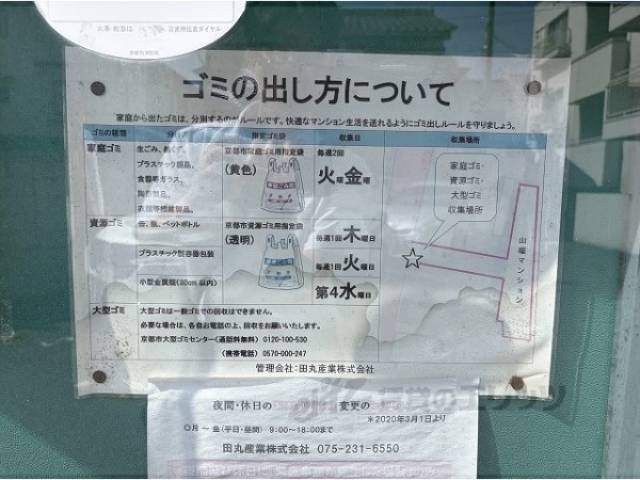 ゴミの出し方について
家庭から出たゴミは、分別するのがルールです。快適なマンション生活を送れるようにゴミ出しルールを守りましょう。
ゴミの種類 指定ゴミ袋 収集日 収集場所
家庭ゴミ
生ごみ、
プラスチック製品、
食器等ガラス、
陶器製品、
衣服等繊維製品。
京都市家庭ゴミ用指定袋
(黄色)
毎週2回
火曜金曜
家庭ゴミ・
資源ゴミ・
大型ゴミ
収集場所
山端マンション
資源ゴミ
缶、瓶、ペットボトル
京都市資源ゴミ用指定袋
(透明)
毎週1回 木曜日
プラスチック製容器包装
毎週1回 火曜日
小型金属類(30cm 以内)
第4水曜日
大型ゴミ
大型ゴミは一般ゴミでの回収はできません。
必要な場合は、各自お電話の上、回収をお願いいたします。
京都市大型ゴミセンター(通話料無料) 0120-100-530
(携帯電話) 0570-000-247
管理会社:田丸産業株式会社
夜間・休日の 変更の
*2020年3月1日より
○月~金(平日・昼間) 9:00~18:00まで
田丸産業株式会社 075-231-6550
賃貸のエリッツ